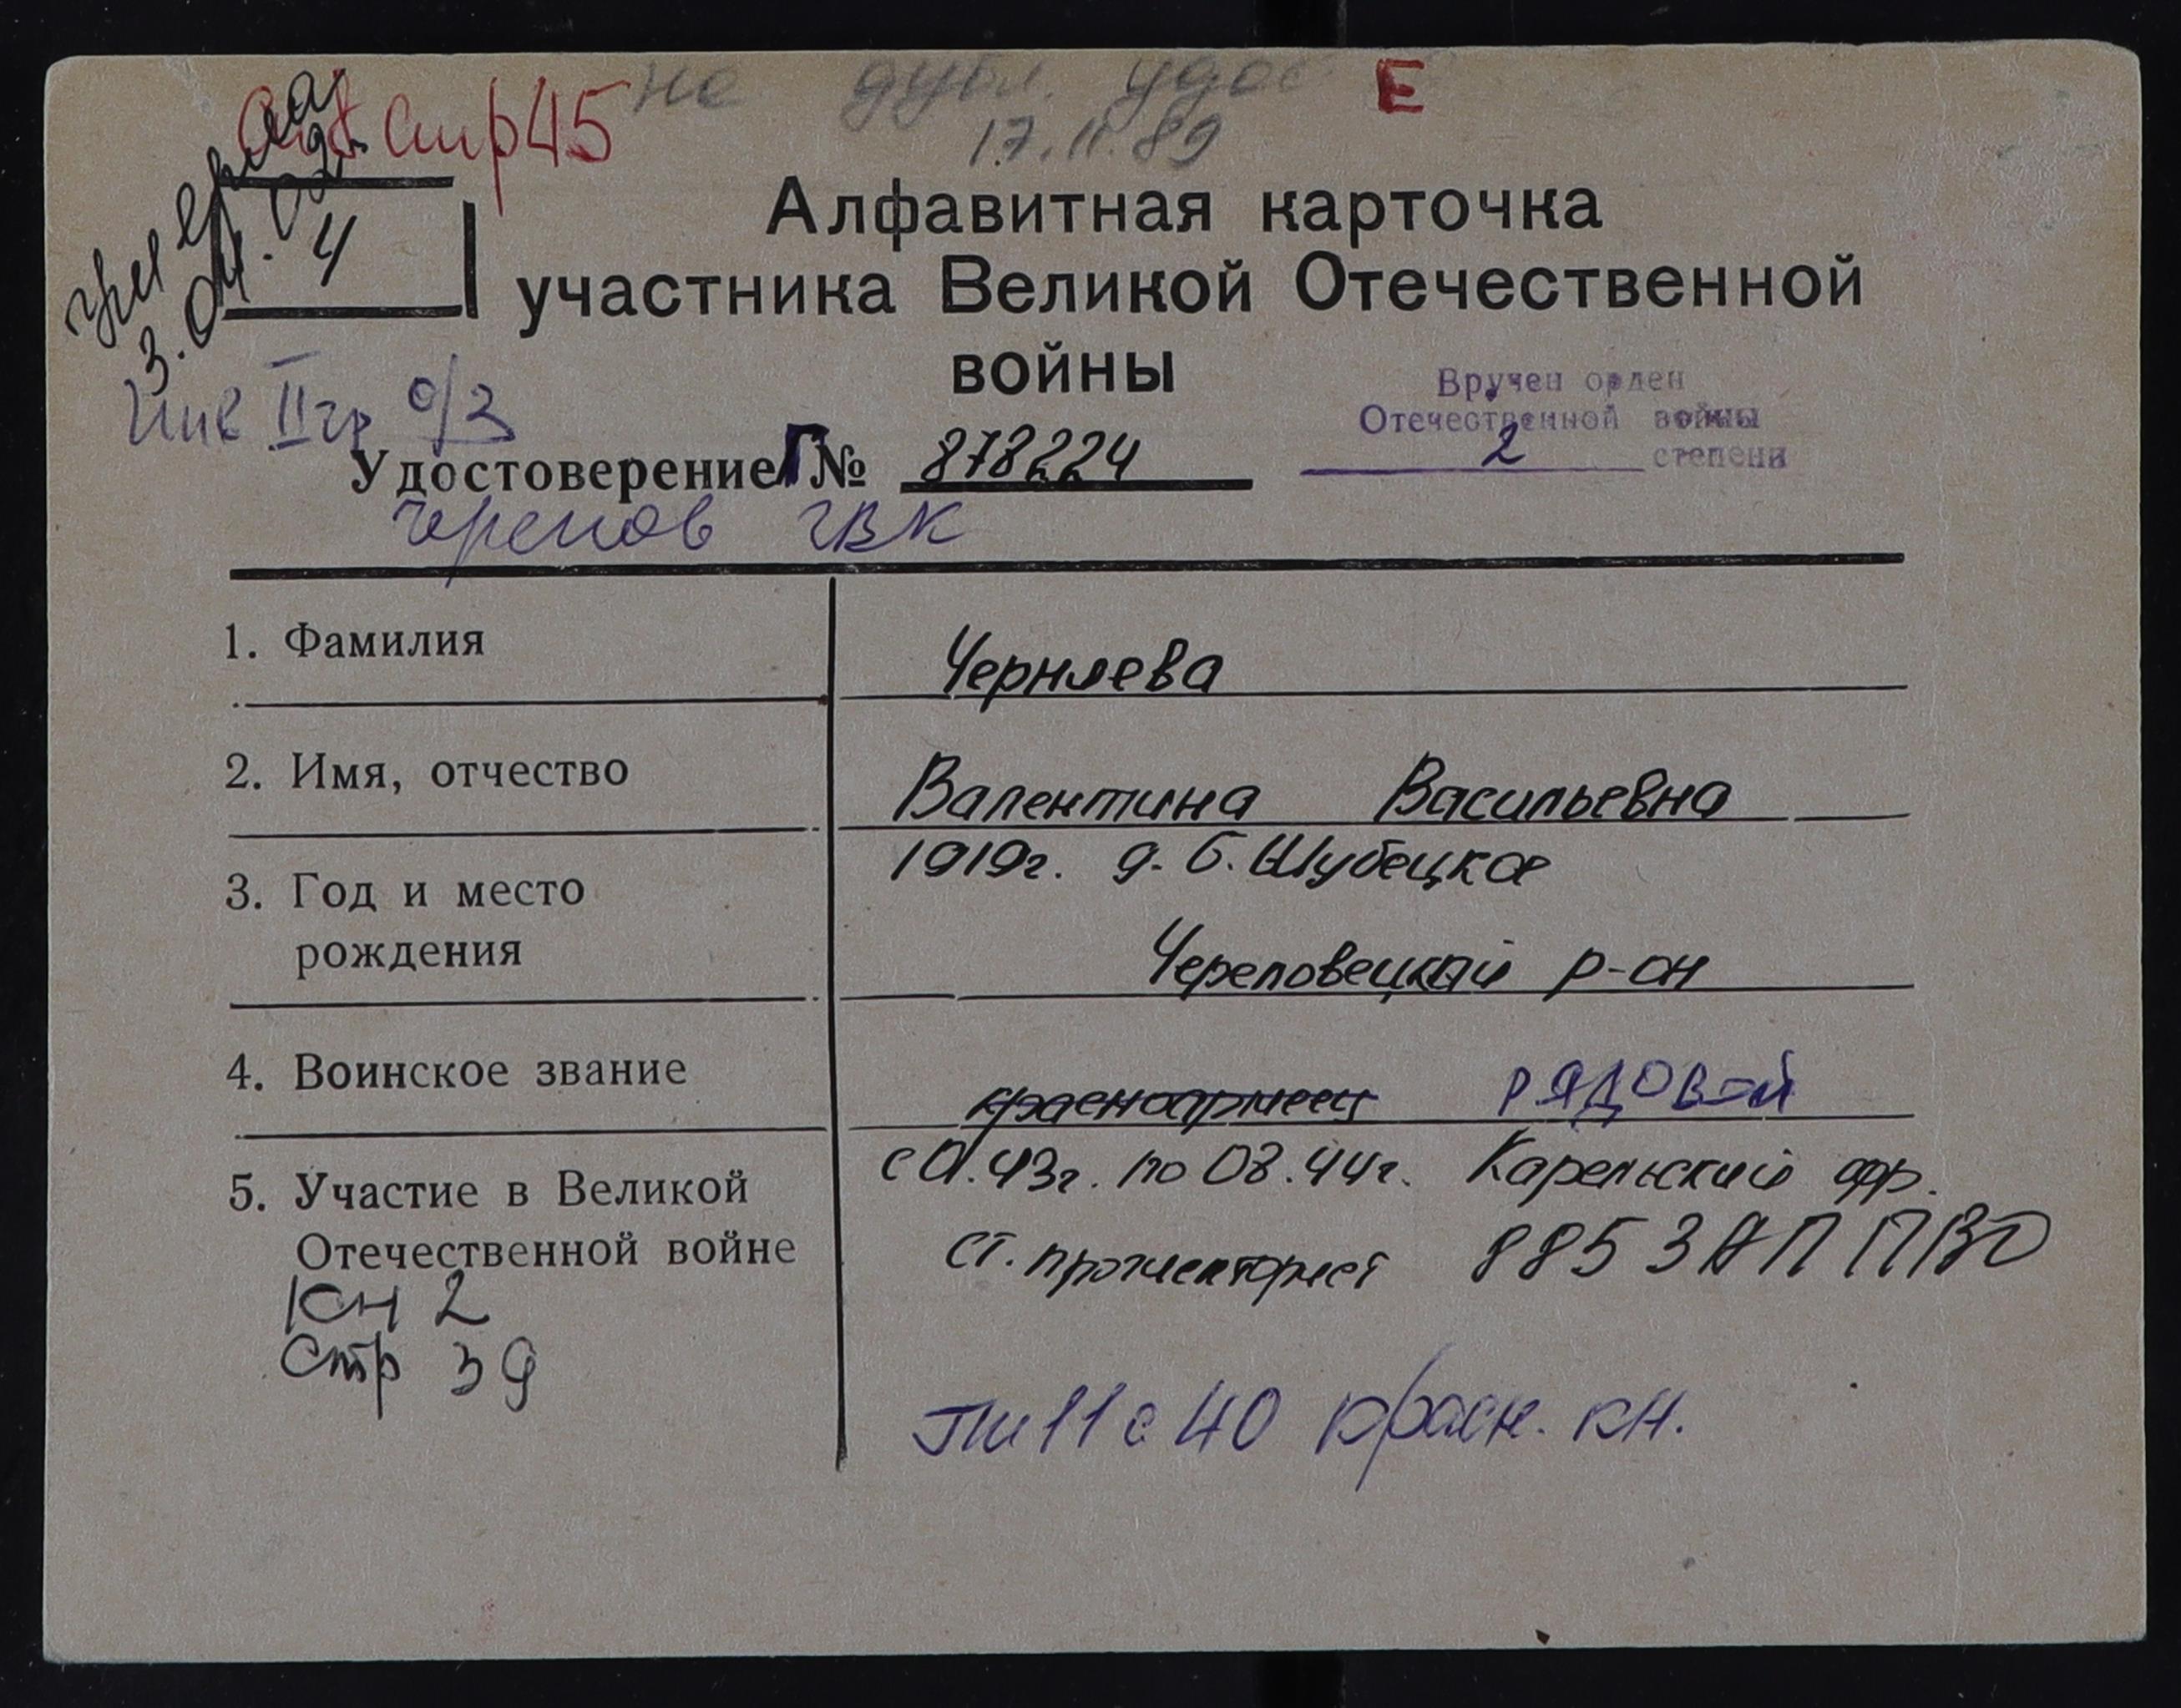 стр 45
на дубл. удос
Е
17.11.89
умерла
3.04.02г.
4
Алфавитная карточка
участника Великой Отечественной
войны
Инв II гр о/з
Вручен орден
Отечественной войны
2 степени
Удостоверение Г № 878224
Черепов ГВК
1. Фамилия
Черняева
2. Имя, отчество
Валентина Васильевна
3. Год и место
рождения
1919г. д. Б. Шубецкое
Череповецкий р-он
4. Воинское звание
красноармеец РЯДОВОЙ
5. Участие в Великой
Отечественной войне
43г. по 08.44г. Карельский фр.
ст. прожекторист 885 ЗАП ПВО
КН 2
стр 39
11 с 40 красн. кн.